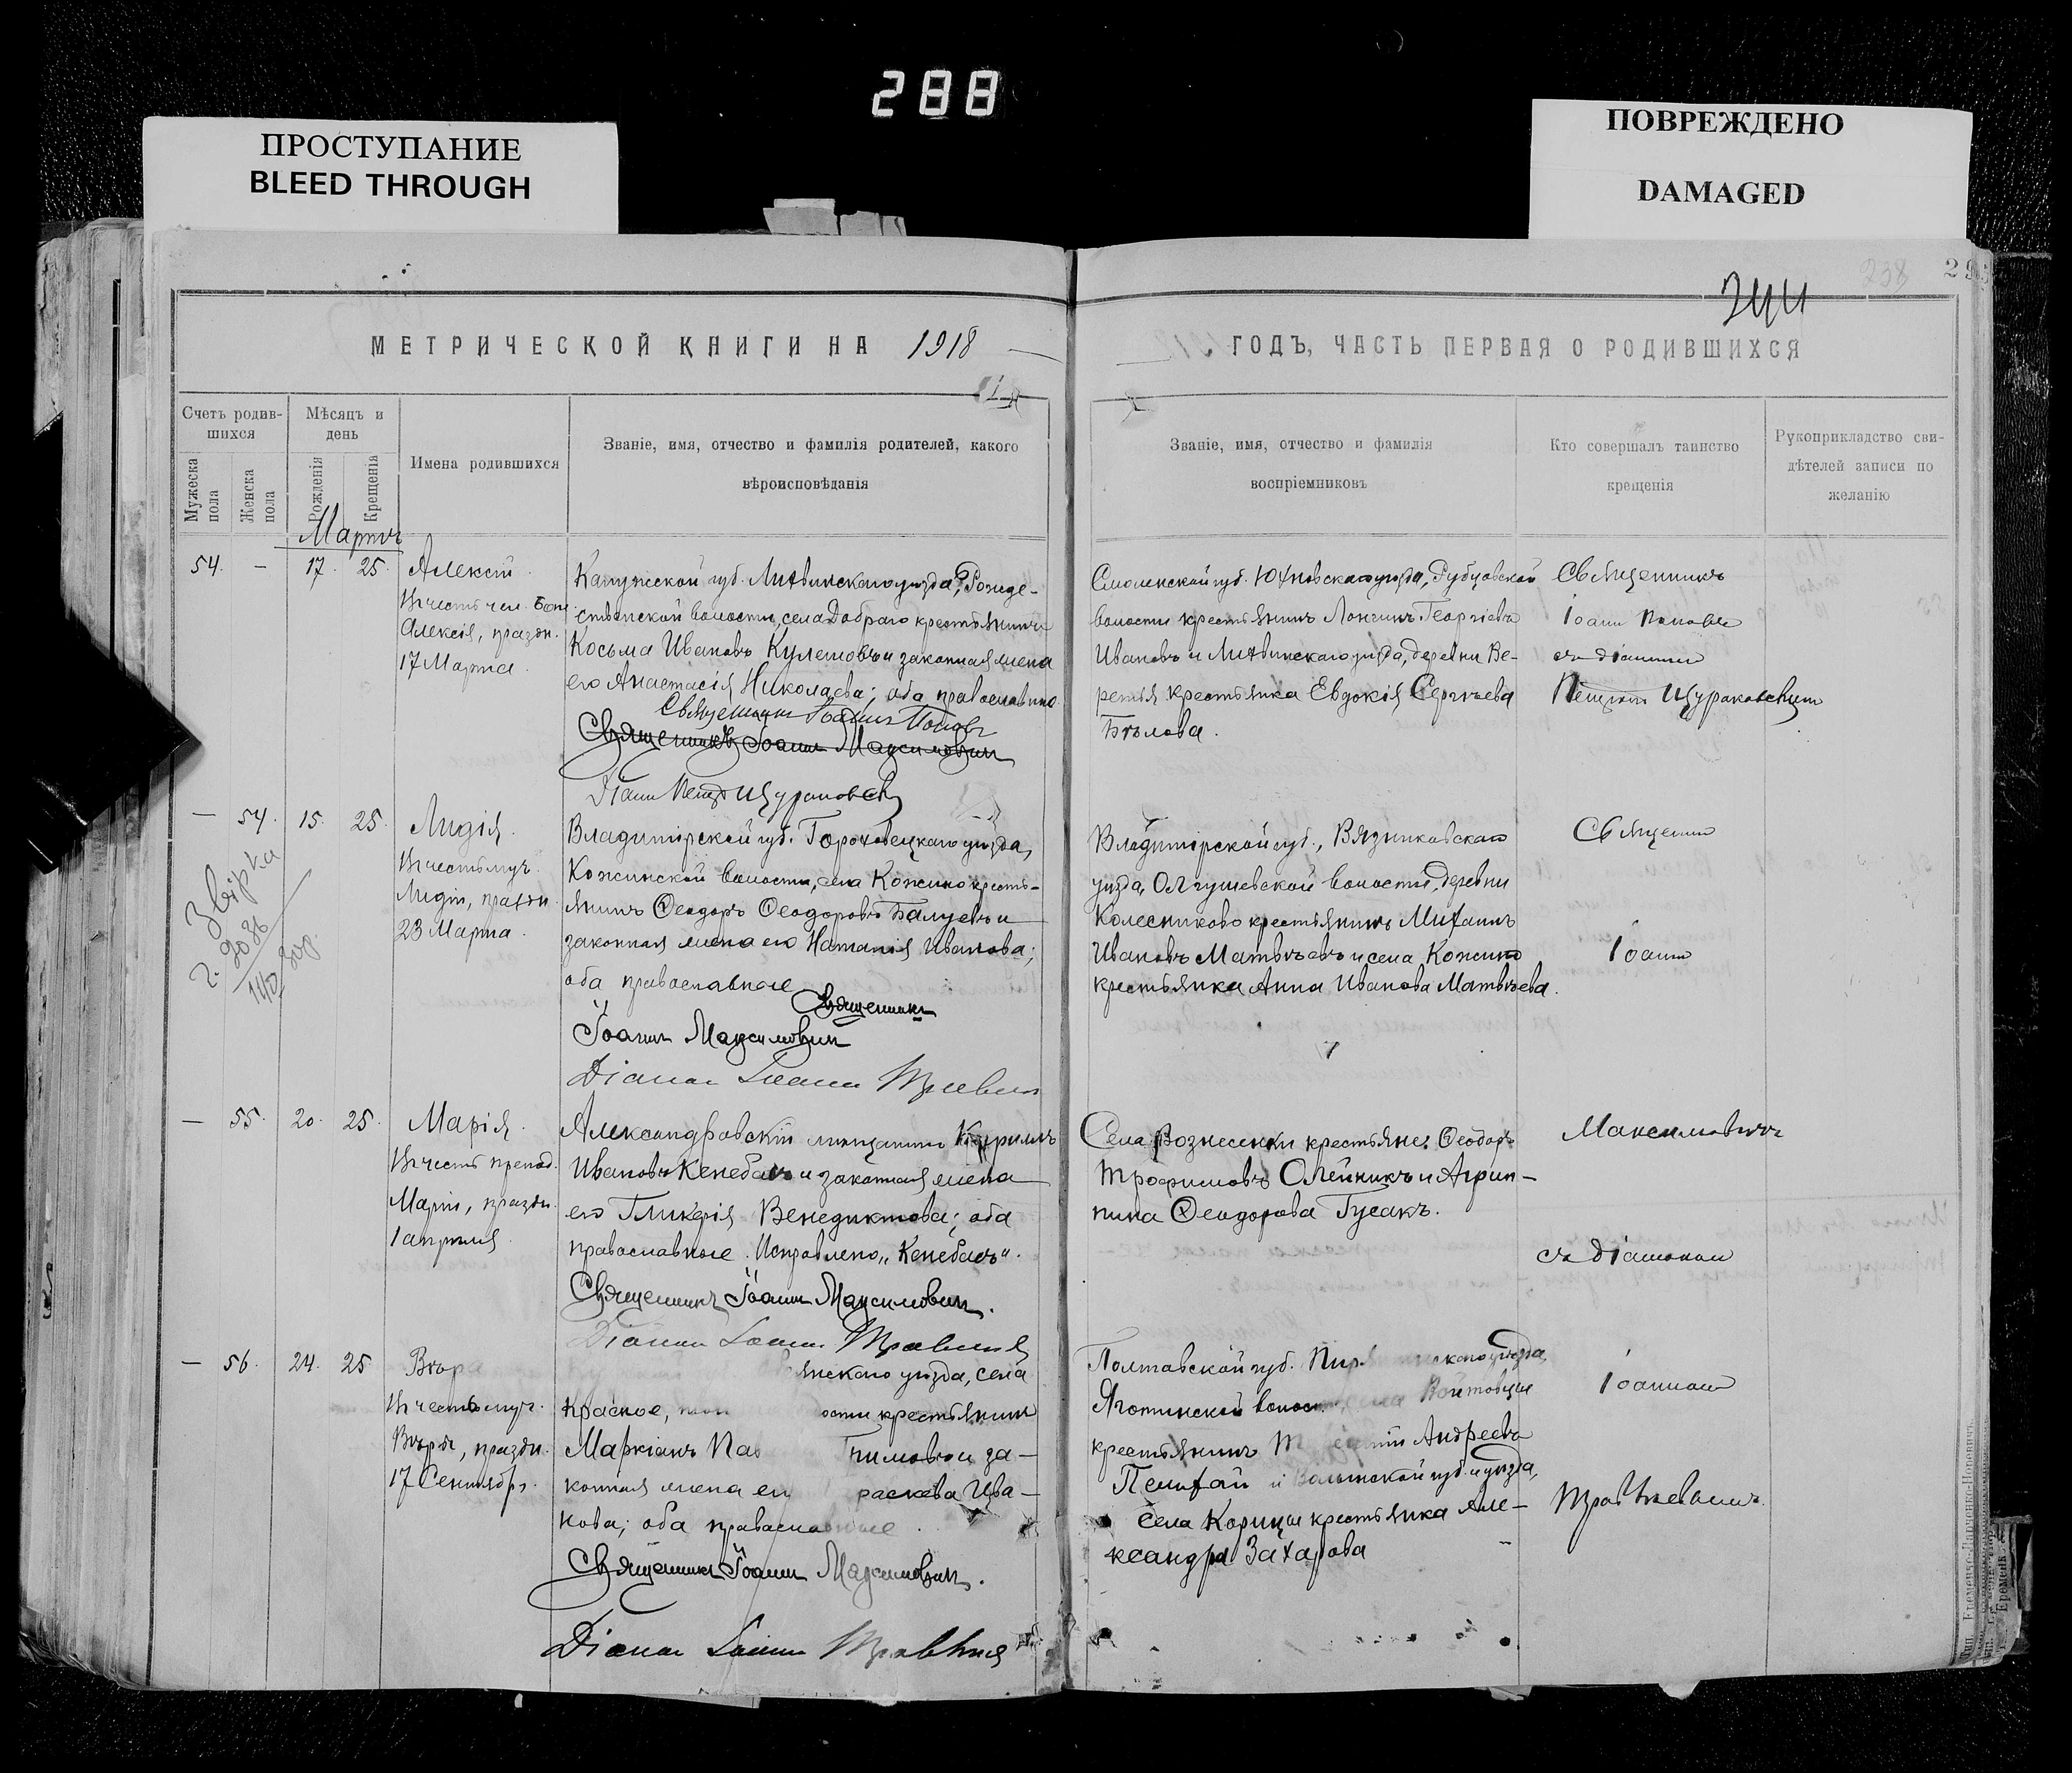 288
ПРОСТУПАНИЕ
BLEED THROUGH
ПОВРЕЖДЕНО
DAMAGED
238
29
МЕТРИЧЕСКОЙ КНИГИ НА 1918
ГОДЪ, ЧАСТЬ ПЕРВАЯ О РОДИВШИХСЯ
Счетъ родив-
шихся
Мужеска
пола
Женска
пола
Мѣсяцъ и
день
Рожденія
Крещенія
Имена родившихся
Званіе, имя, отчество и фамилія родителей, какого
вѣроисповѣданія
Званіе, имя, отчество и фамилія
воспріемниковъ
Кто совершалъ таинство
крещенія
Рукоприкладство сви-
дѣтелей записи по
желанію
Мартъ
54. – 17. 25. Алексій
Въ честь чел. Бож.
Алексія, праздн.
17 Марта.
Калужской губ. Лихвинскаго уѣзда, Рожде-
ственской волости, села Добраго крестьянинъ
Косьма Ивановъ и законная жена
его Анастасія Николаева; оба православные
Священникъ Іоаннъ Поповъ
Священникъ Іоаннъ Максимовичъ
Діаконъ Петръ Щураковскій
Смоленской губ. Юхновскаго уѣзда, Рубцовской
волости крестьянинъ Лонгинъ Георгіевъ
Ивановъ и Лихвинскаго уѣзда, деревни Бе-
регъ крестьянка Евдокія Сергѣева
Бѣлова.
Священникъ
Іоаннъ Поповъ
съ діакономъ
Щураковскимъ
– 54. 15. 25. Лидія.
Въ честь муч.
Лидіи, праздн.
23 Марта.
Звірка
Владимірской губ. Гороховецкаго уѣзда,
Кожинской волости, села Кожино кресть-
янинъ Ѳеодоръ Ѳеодоровъ Балуевъ и
законная жена его Наталія Иванова;
оба православные
Священникъ
Іоаннъ Максимовичъ
Діаконъ Іоаннъ
Владимірской губ., Вязниковскаго
уѣзда, Олтушевской волости, деревни
Колесниково крестьянинъ Михаилъ
Ивановъ Матвѣевъ и села Кожино
крестьянка Анна Иванова Матвѣева.
Священникъ
Іоаннъ
– 55. 20. 25. Марія.
Въ честь препод.
Маріи, праздн.
1 апрѣля.
Александровскій мѣщанинъ Кириллъ
Ивановъ Кенебасъ и законная жена
его Гликерія Венедиктова; оба
православные. Исправлено „Кенебасъ“.
Священникъ Іоаннъ Максимовичъ.
Діаконъ Іоаннъ
Села Вознесенки крестьяне: Ѳеодоръ
Трофимовъ Олейникъ и Агрип-
пина Ѳеодорова Гусакъ.
Максимовичъ
съ діакономъ
– 56. 24. 25 Вѣра
Въ честь муч.
Вѣры, праздн.
17 Сентября.
янскаго уѣзда, села
Красное, ости крестьянинъ
Маркіанъ и за-
конная жена его раскева Ива-
нова; оба православные.
Священникъ Іоаннъ Максимовичъ.
Діаконъ Іоаннъ
Полтавской губ. скаго уѣзда,
Яготинской волости, села Войтовцы
крестьянинъ Андреевъ
и Волынской губ. и уѣзда,
села Корицы крестьянка Але-
ксандра Захарова
Іоанномъ